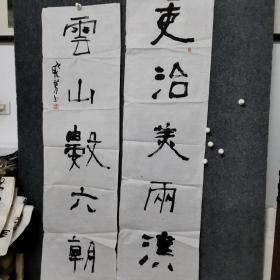 吏治美兩漢
雲山數六朝